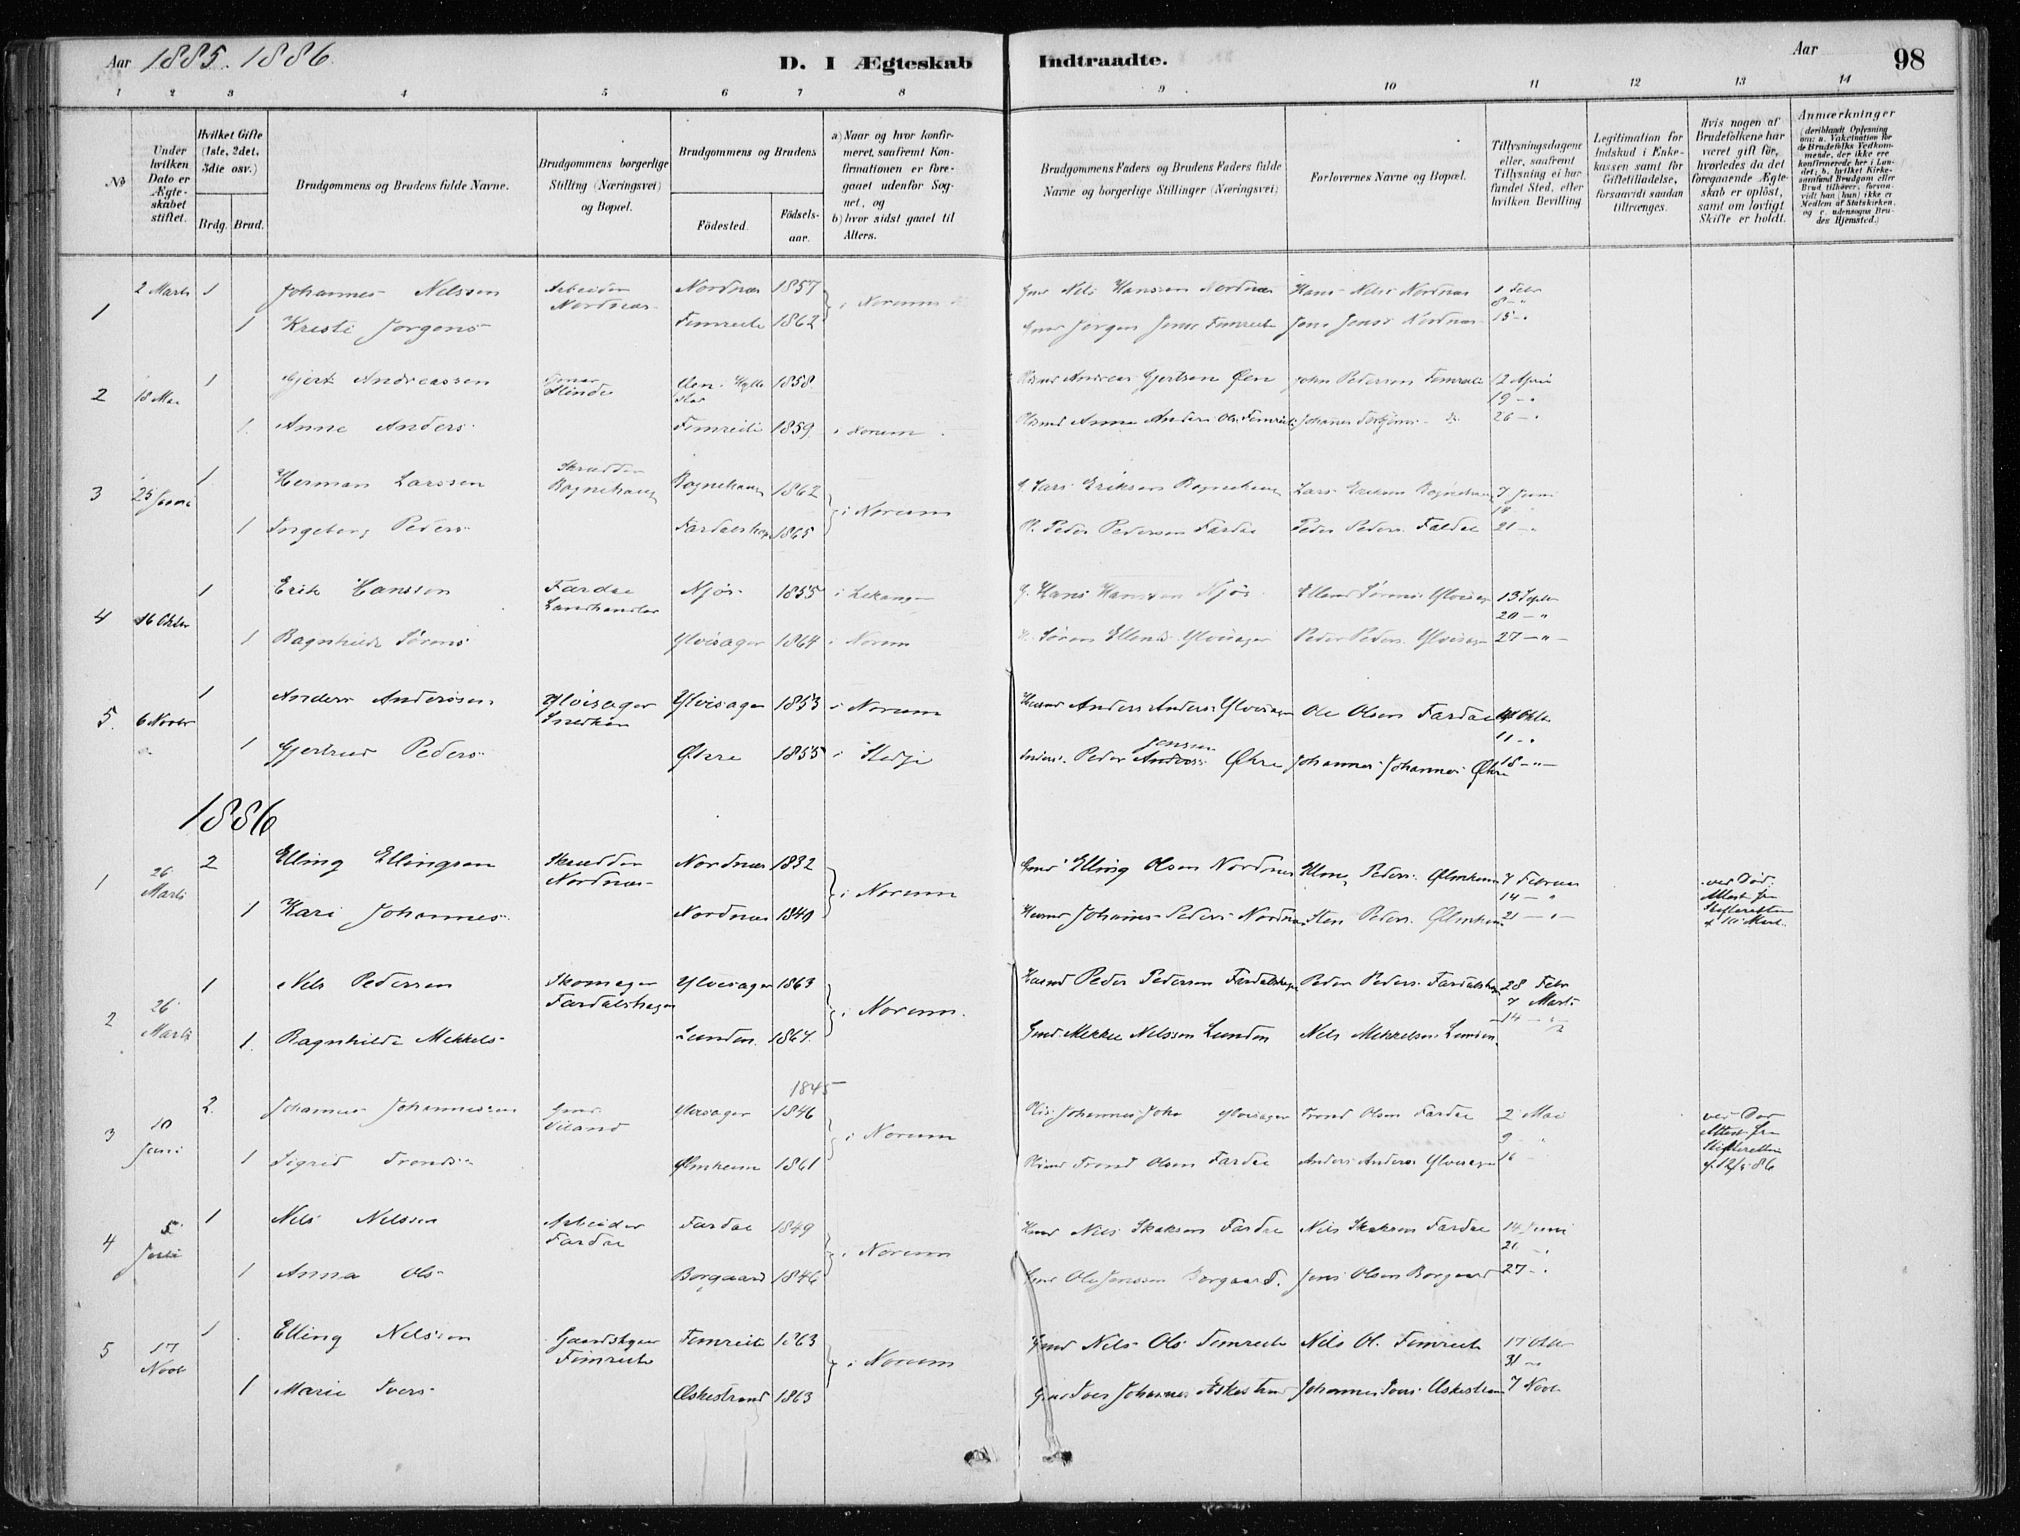 Aar 1885. 1886. D. I Ægteskab Indtraadte. Aar 98
1 2 3 4 5 6 7 8 9 10 11 12 13 14
No
Under hvilken Dato er Ægteskabet stiftet.
Hvilket Gifte (1ste, 2det, 3die osv.)
Brdg. Brud.
Brudgommens og Brudens fulde Navne.
Brudgommens borgerlige Stilling (Næringsvei) og Bopæl.
Brudgommens og Brudens
Fødested. Fødselsaar.
a) Naar og hvor konfirmeret, saafremt Konfirmationen er foregaaet udenfor Sognet, og
b) hvor sidst gaaet til Alters.
Brudgommens Faders og Brudens Faders fulde Navne og borgerlige Stillinger (Næringsvei)
Forlovernes Navne og Bopæl.
Tillysningsdagene eller, saafremt Tillysning ei har fundet Sted, efter hvilken Bevilling
Legitimation for Indskud i Enkekassen samt for Giftetilladelse, forsaavidt saadan tiltrænges.
Hvis nogen af Brudefolkene har været gift før, hvorledes da det foregaaende Ægteskab er opløst, samt om lovligt Skifte er holdt.
Anmærkninger (deriblandt Oplysning om: a. Vakcination for de Brudefolks Vedkommende, der ikke ere konfirmerede her i Landet; b. hvilket Kirkesamfund Brudgom eller Brud tilhører, forsaavidt han (hun) ikke er Medlem af Statskirken, og c. udensogns Brudes Hjemsted.)
1 2 Marts 1 Johannes Nilssen Arbeider Nordnæs Nordnæs 1857 i Norum Gmd Nils Hanssen Nordnæs Hans Nils Nordnæs 1 Febr
8 - "
1 Kristi Jørgens Fimreite 1862 Gmd Jørgen Jens Fimreite Jens Jens Nordnæs 15 - "
2 18 Mai 1 Gjert Andreassen Slinde 1858 Andreas Gjertsen Øen John Pedersen Fimreite 12 April
19 - "
1 Anne Anders Fimreite 1859 i Norum Anders Ols. Fimreite Johannes 26 - "
3 25 Juni 1 Herman Larssen Skrædder Bognehaug Bognehaug 1862 i Norum Lars Eriksen Bognehaug Lars Eriksen Bognehaug 7 Juni
1 Ingeborg Peders Fardalshag 1865 Peder Pedersen Fardal Peder Peders. 21 - "
4 16 Oktbr 1 Erik Hanssen Fardal Landhandler Njøs 1855 i Lekanger Hans Hanssen Njøs Ellend Sørens Ylvisager 13 Septbr
20 - "
1 Ragnhilde Sørens Ylvisager 1864 i Norum Søren Ellends Ylvisager Peder Peders. Ylvisager 27 - " -
5. 6 Novbr 1 Anders Anderssen Ylvisager Snedker Ylvisager 1853 i Norum Husmd Anders Anders. Ylvisager Ole Olsen Fardal 4 Oktbr
11 - "
1 Gjertrud Peders Økre 1855 i Stedje Peder Jenssen Økre Johannes Johannes Økre 18 - " -
1886
1 26 Marts 2 Elling Ellingsen Skrædder Nordnæs Nordnæs 1832 i Norum Gmd Elling Olsen Nordnæs Peders. Ølmheim 7 Februar
14 - "
1 Kari Johannes Nordnæs 1840 Husmd Johannes Peders Nordnæs Sten Peders. Ølmheim 21 - " -
ved Død. Attest fra Skifteretten
2 26 Marts 1 Nils Pedersen Skomager Fardalshagen Ylvisager 1863 i Norum. Husmd Peder Pedersen Fardalshagen Peder Peders. Fardalshagen 28 Febr
7 Marts
1. Ragnhilde Mikkels Lunden. 1864. Gmd. Mikkel Nilssen Lunden Nils Mikkelsen Lunden. 14 - " -
3 10 Juni 2. Johannes Johannessen Gmd. Ylvisager 1845 1846 i Norum Johannes Joh. Ylvisager Trond Olsen Fardal 2 Mai
9 - "
1 Sigrid Tronds Ølmheim 1861 Trond Olsen Fardal Anders Anders. Ylvisager 16 - "
ved Død Attest fra Skifteretten
4 5 Juli 1 Nils Nilssen Arbeider Fardal Fardal 1849 i Norum Nils Skaksen Fardal Nils Skaksen Fardal 14 Juni
21 - "
1 Anna Ols Borgaard 1846 Gmd Ole Jenssen Borgaard. Jens Olsen Borgaard 27 - "
5 17 Novb 1. Elling Nilssen Fimreite Fimreite 1863 i Norum Gmd Nils Ols Fimreite Nils Ol. Fimreite 17 Oktr
31 - "
1 Marie Ivers Askestrand 1863 Gmd Iver Johannes Askestrand Johannes Ivers Askestrand 7 Novb